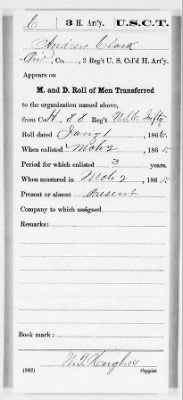 C | 3 H. Art'y. | U.S.C.T.
Andrew Clark
Priv, Co. , 3 Reg't U. S. Col'd H. Art'y.
Appears on
M. and D. Roll of Men Transferred
to the organization named above,
from Co. H, 88 Reg't U.S.C. Infty
Roll dated Jany 1 , 1866.
When enlisted Mch 2 , 1865.
Period for which enlisted 3 years.
When mustered in Mch 2 , 1865.
Present or absent Present
Company to which assigned
Remarks:
Book mark:
(362) Copyist.